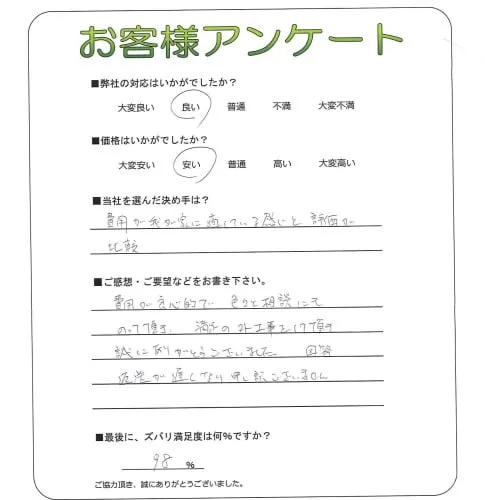 お客様アンケート
■弊社の対応はいかがでしたか？
大変良い 良い 普通 不満 大変不満
■価格はいかがでしたか？
大変安い 安い 普通 高い 大変高い
■当社を選んだ決め手は？
費用が我が家に適している感じと 評価が
比較
■ご感想・ご要望などをお書き下さい。
費用が良心的で 色々と相談にも
のって頂き、満足の 工事をして頂き
誠にありがとうございました 回答
返送が遅くなり申し訳ございません
■最後に、ズバリ満足度は何％ですか？
98 %
ご協力頂き、誠にありがとうございました。